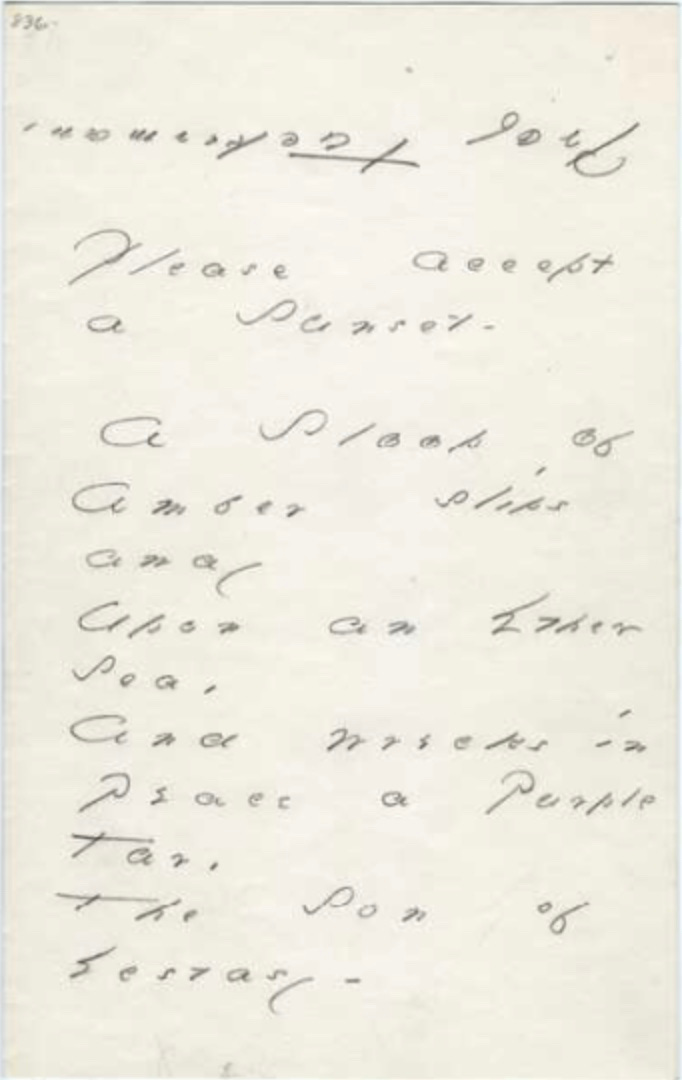 836
Prof Tuckerman.
Please accept
a Sunset -
A Sloop of
Amber slips
away
Upon an Ether
Sea,
And wrecks in
Peace a Purple
Tar,
The Son of
Ecstasy -